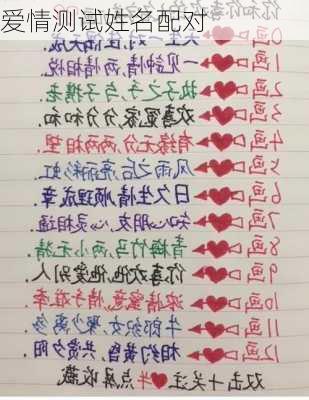 爱情测试姓名配对
你和你喜
0画 天生一对,佳偶天成.
1画 一见钟情,两情相悦.
2画 执子之手,与子携老.
3画 欢喜冤家,分分和和.
4画 有缘无分,两两相望.
5画 风雨之后,亮丽彩虹.
6画 日久生情,顺理成章.
7画 知心朋友,心灵相通.
8画 青梅竹马,两小无猜.
9画 你喜欢他,他爱别人.
10画 浓情蜜意,情子难牵.
11画 牛郎织女,聚少离多.
12画 相约黄昏,共赏夕阳.
双击+关注 + 点屏收藏